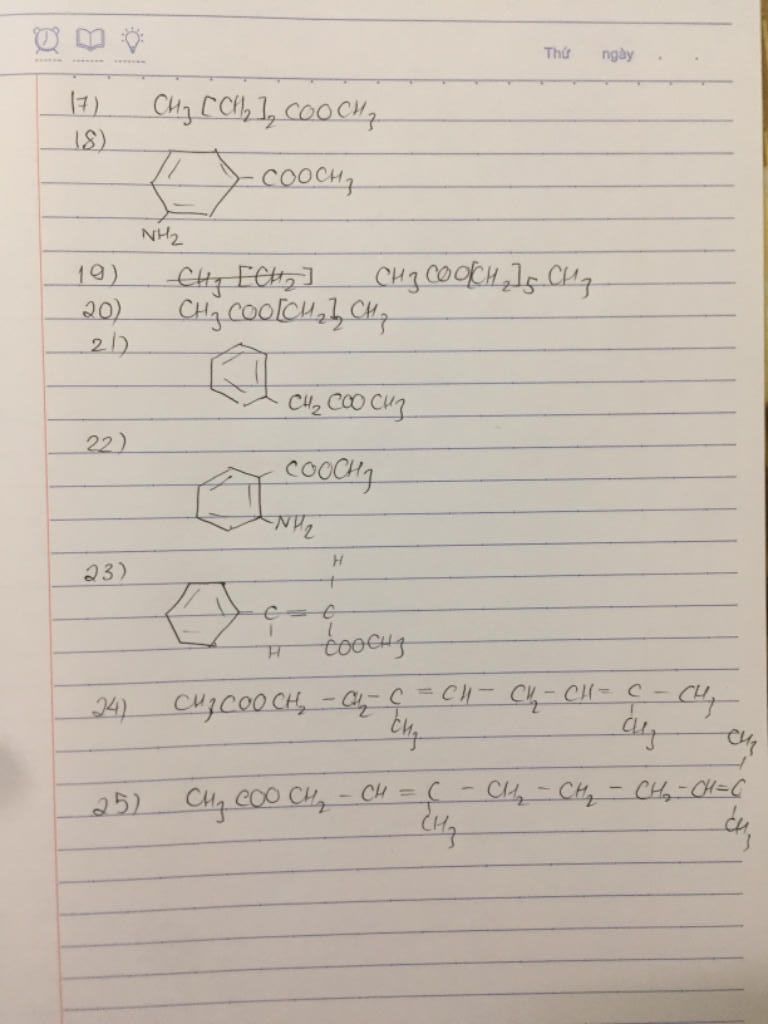 Thứ ngày . .
17) CH3[CH2]2COOCH3
18)
-COOCH3
NH2
19) ~~CH3[CH2]~~ CH3COO[CH2]5CH3
20) CH3COO[CH2]2CH3
21)
CH2COOCH3
22)
COOCH3
NH2
23)
H
C = C
H COOCH3
24) CH3COOCH2 - CH2 - C = CH - CH2 - CH = C - CH3
CH3 CH3
CH3
25) CH3COOCH2 - CH = C - CH2 - CH2 - CH2 - CH = C
CH3 CH3